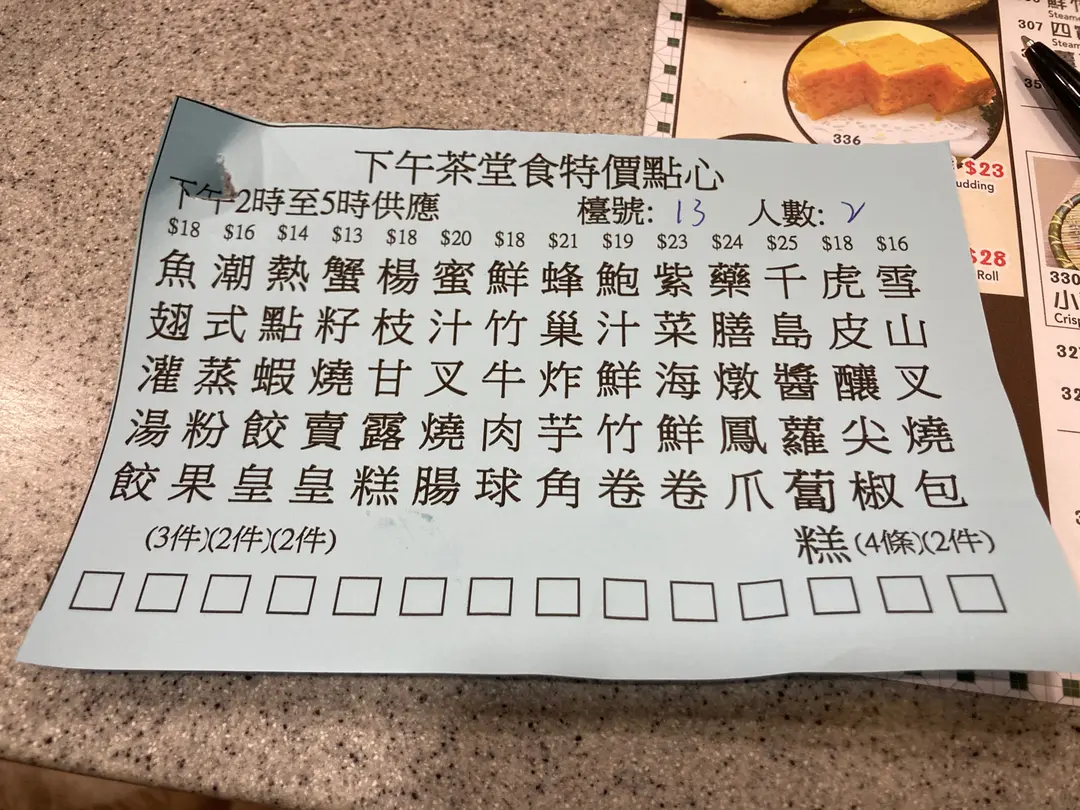 下午茶堂食特價點心
下午2時至5時供應
檯號: 13 人數: 2
$18 魚翅灌湯餃
$16 潮式蒸粉果 (3件)
$14 熱點蝦餃皇 (2件)
$13 蟹籽燒賣皇 (2件)
$18 楊枝甘露糕
$20 蜜汁叉燒腸
$18 鮮竹牛肉球
$21 蜂巢炸芋角
$19 鮑汁鮮竹卷
$23 紫菜海鮮卷
$24 藥膳燉鳳爪
$25 千島醬蘿蔔糕
$18 虎皮釀尖椒 (4條)
$16 雪山叉燒包 (2件)
336
$23
udding
$28
Roll
307 四
Steam
330
小
Crisp